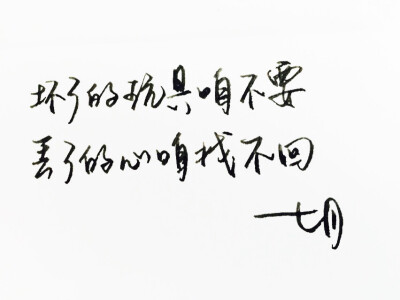 坏了的玩具咱不要
丢了的心咱找不回
一七月